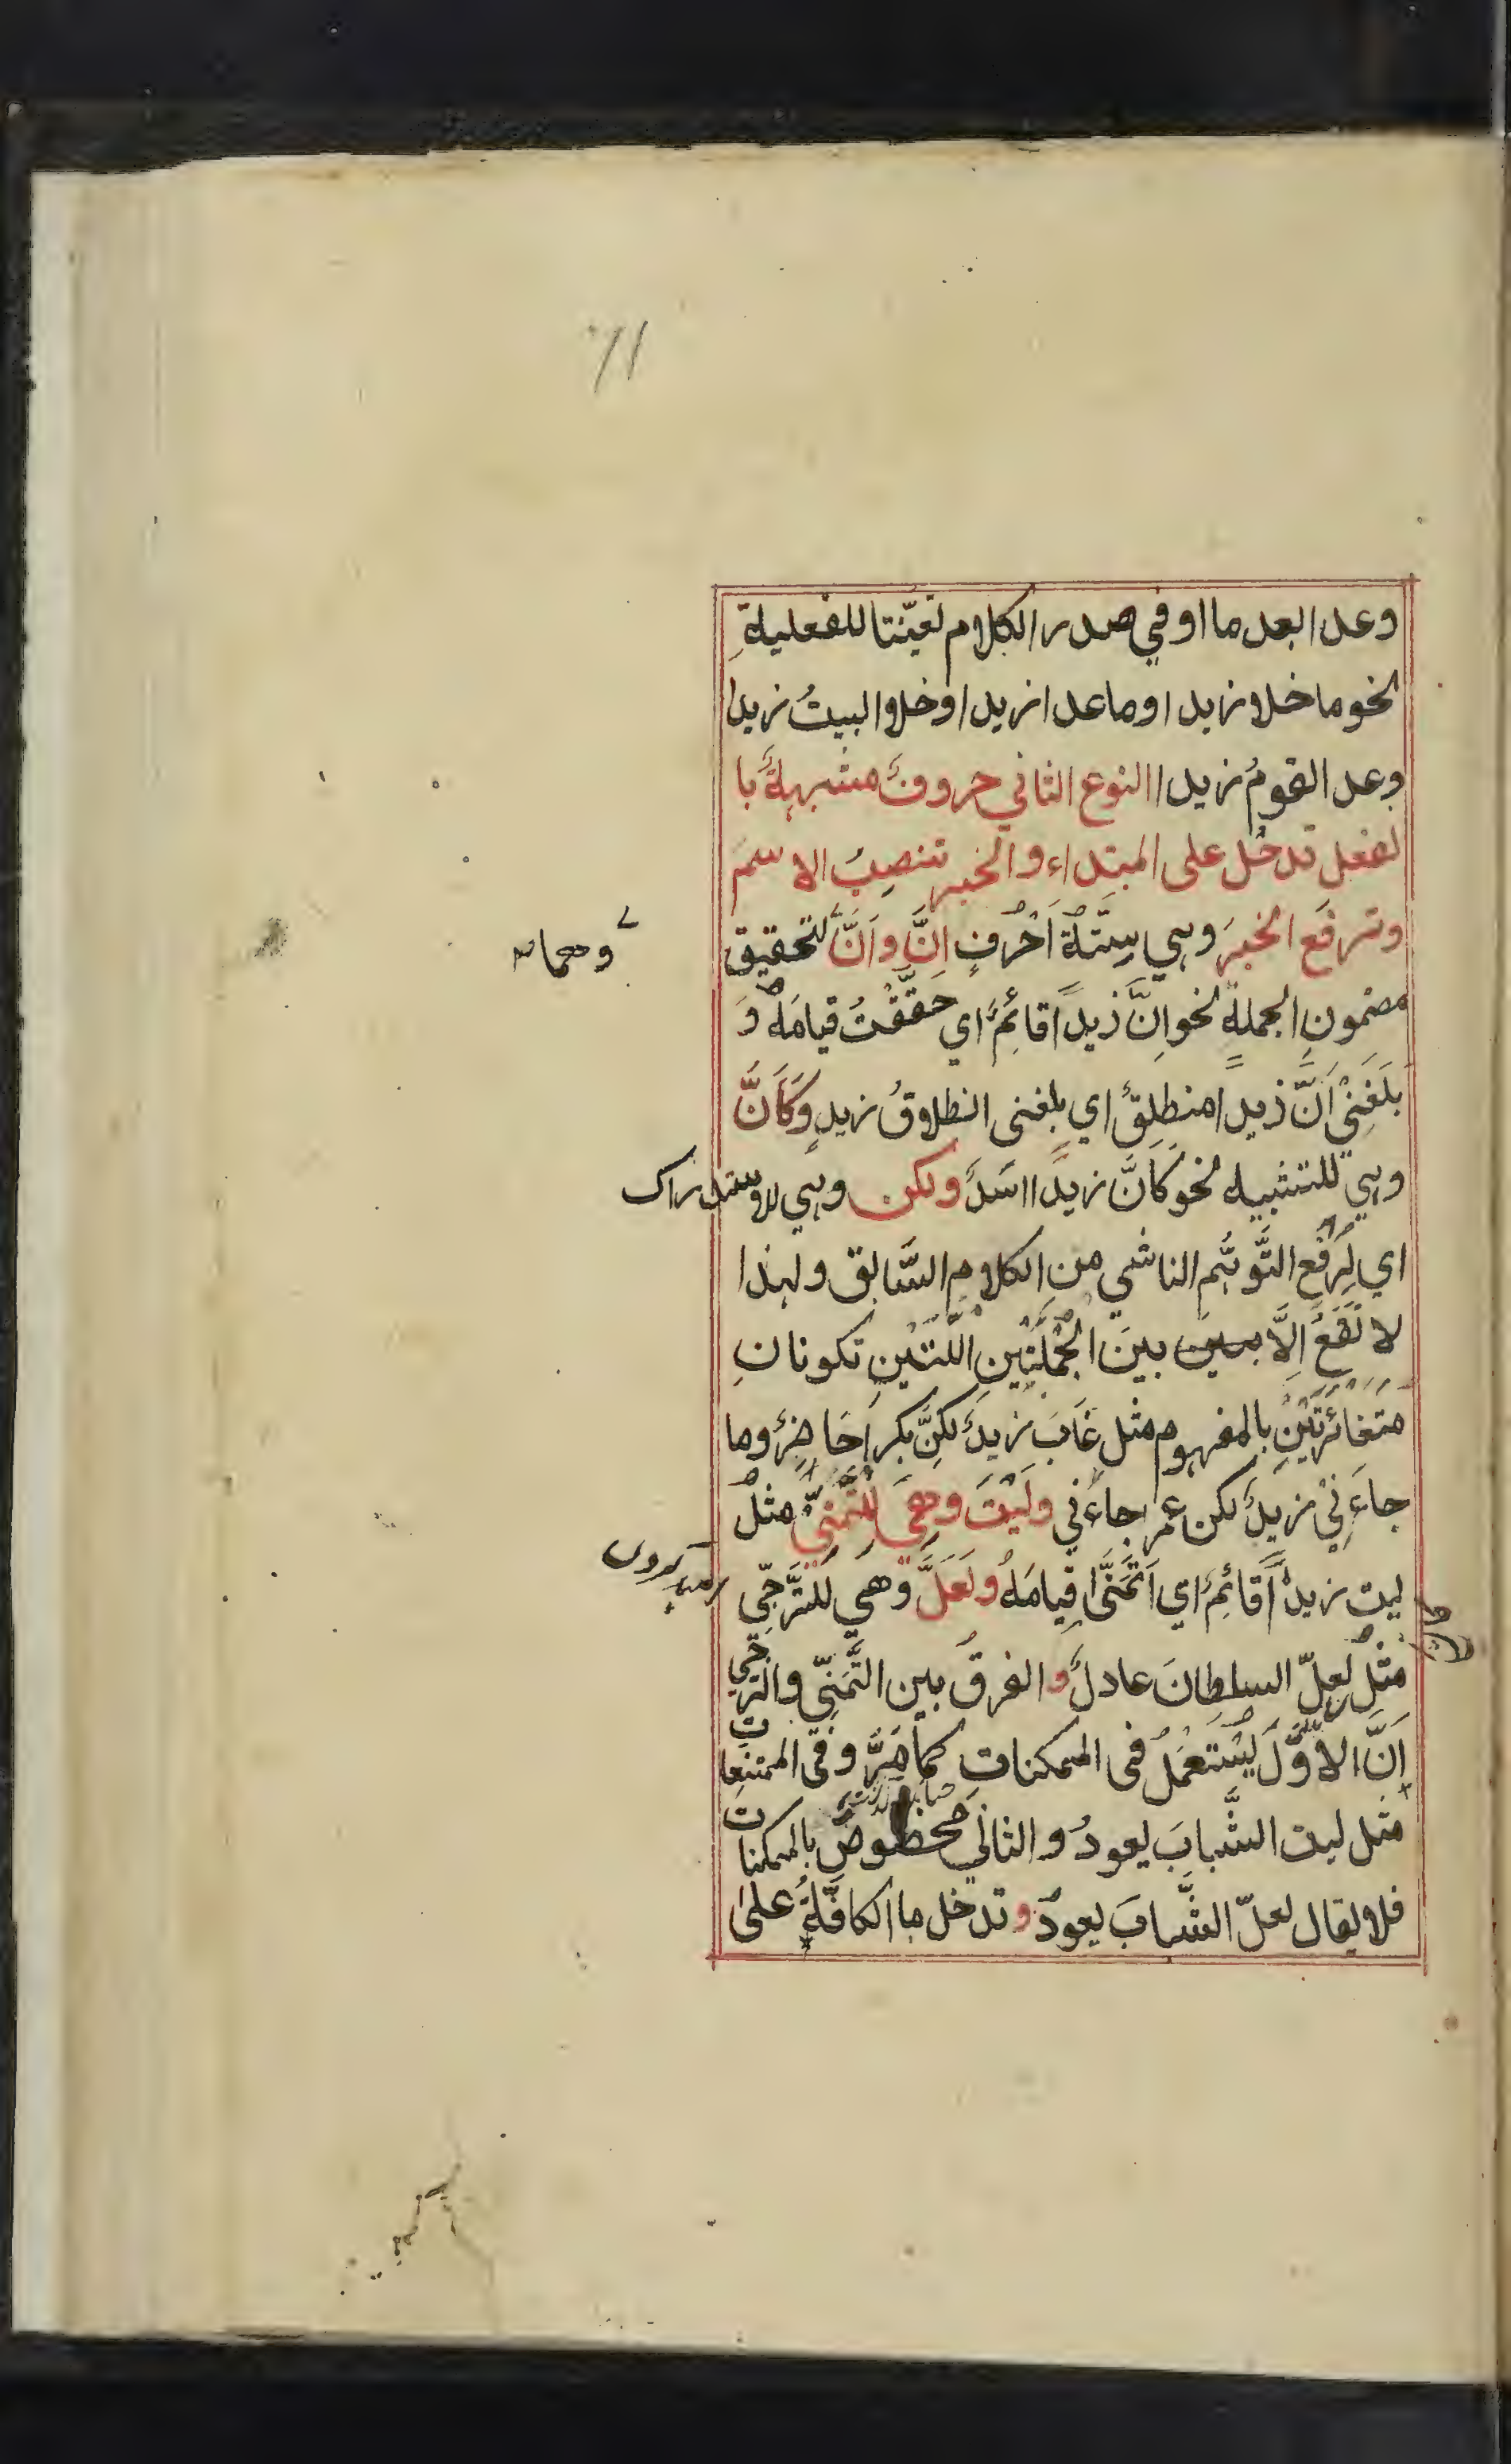 وعدا بعد ما او في صدر الكلام تعيّنتا للفعليةِ
نحو ما خلا زيدا وما عدا زيدا او خلا البيتُ زيدا
وعدا القومُ زيدا النوع الثاني حروفٌ مشبهةٌ با
لفعل تدخُل على المبتداء والخبر تنصِبُ الاسمَ
وترفَع الخبرَ وهي سِتَّةُ اَحْرُفٍ اِنَّ واَنَّ لتحقيق
وهما
مضمونِ الجملة نحو اِنَّ زيداً قائِمٌ اي حَقَّقْتُ قيامَهُ وَ
بَلَغَنِيْ اَنَّ زيدا منطلِقٌ اي بلغنى انطلاقُ زيدٍ وَكَاَنَّ
وهي للتشبيه نحو كَاَنَّ زيداً اسَدٌ ولكن وهي للاستدراك
اي لِرَفْع التَّوَهُّم الناشي مِنِ الكلامِ السَّابق ولهذا
لا تَقَعُ اِلَّا بين بينَ الجُمْلَتَيْنِ اللَّتَيْنِ تكونانِ
مُتَغَائِرَتَيْنِ بالمفهوم مثل غَابَ زيدٌ لكِنَّ بكراً حَاضِرٌ وما
جاءَنِيْ زيدٌ لكن عمرا جاءَني ولَيْتَ وهِيَ لِلتَّمَنِّيْ مثلُ
ليت زيداً قائِمٌ اي اَتَمَنَّى قِيامَهُ ولَعَلَّ وهي للتَّرَجِّي
مثلُ لعلّ السلطانَ عادلٌ والفرقُ بين التَّمَنِّي والترجّي
اَنَّ الاوَّلَ يُسْتَعْمَلُ فى الممكناتِ كما مَرَّ وفى الممتنِعاتِ
مثل ليت الشَّبابَ يعودُ والثاني مخصوصٌ بالممكناتِ
فلا يقال لعلّ الشَّبابَ يعودُ وتدخل ما الكافَّةُ على